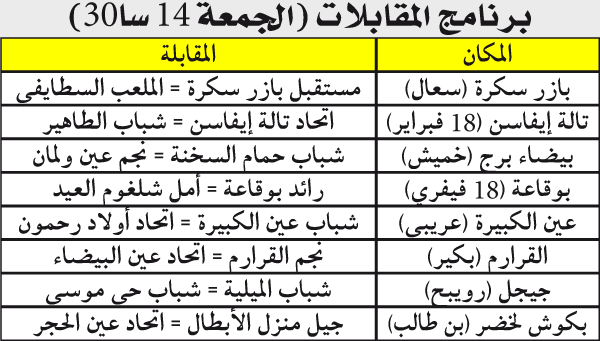 برنامج المقابلات (الجمعة 14 سا30)
المكان المقابلة
بازر سكرة (سعال) مستقبل بازر سكرة = الملعب السطايفي
تالة إيفاسن (18 فبراير) اتحاد تالة إيفاسن = شباب الطاهير
بيضاء برج (خميش) شباب حمام السخنة = نجم عين ولمان
بوقاعة (18 فيفري) رائد بوقاعة = أمل شلغوم العيد
عين الكبيرة (عريبي) شباب عين الكبيرة = اتحاد أولاد رحمون
القرارم (بكير) نجم القرارم = اتحاد عين البيضاء
جيجل (رويبح) شباب الميلية = شباب حي موسى
بكوش لخضر (بن طالب) جيل منزل الأبطال = اتحاد عين الحجر